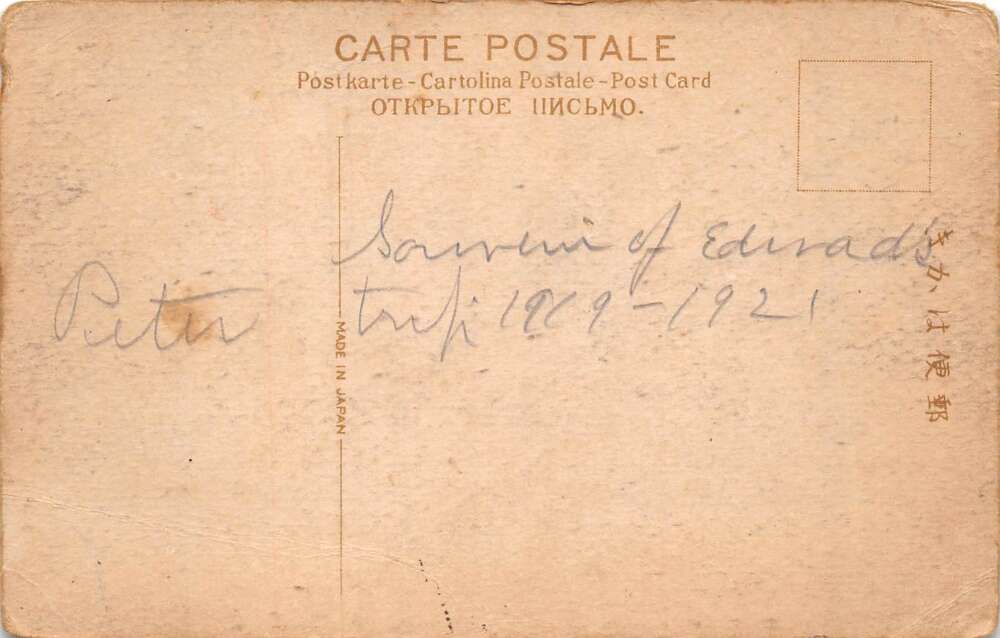 CARTE POSTALE
Postkarte - Cartolina Postale - Post Card
ОТКРЫТОЕ ПИСЬМО.
Souvenir of Edward's
trip 1919-1921
Peter
MADE IN JAPAN
きかは便郵